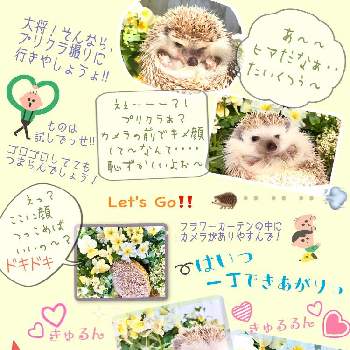 大将！そんなら、
プリクラ撮りに
行きやしょうょ!!
あ〜〜
ヒマだなぁ・・
たいくつぅ〜
ぇぇ〜〜〜？！
プリクラぁ？
カメラの前でキメ顔
して〜なんて・・・・
恥ずかしいよぉ〜
ものは
試しでっせ!!
ゴロゴロしてても
つまらんでしょう！
Let's Go!!
えっ？
ここに顔
つっこめば
いいの〜？
ドキドキ
フラワーカーテンの中に
カメラがありやすんで！
はいっ
一丁できあがりっ
きゅるるん
きゅるるん